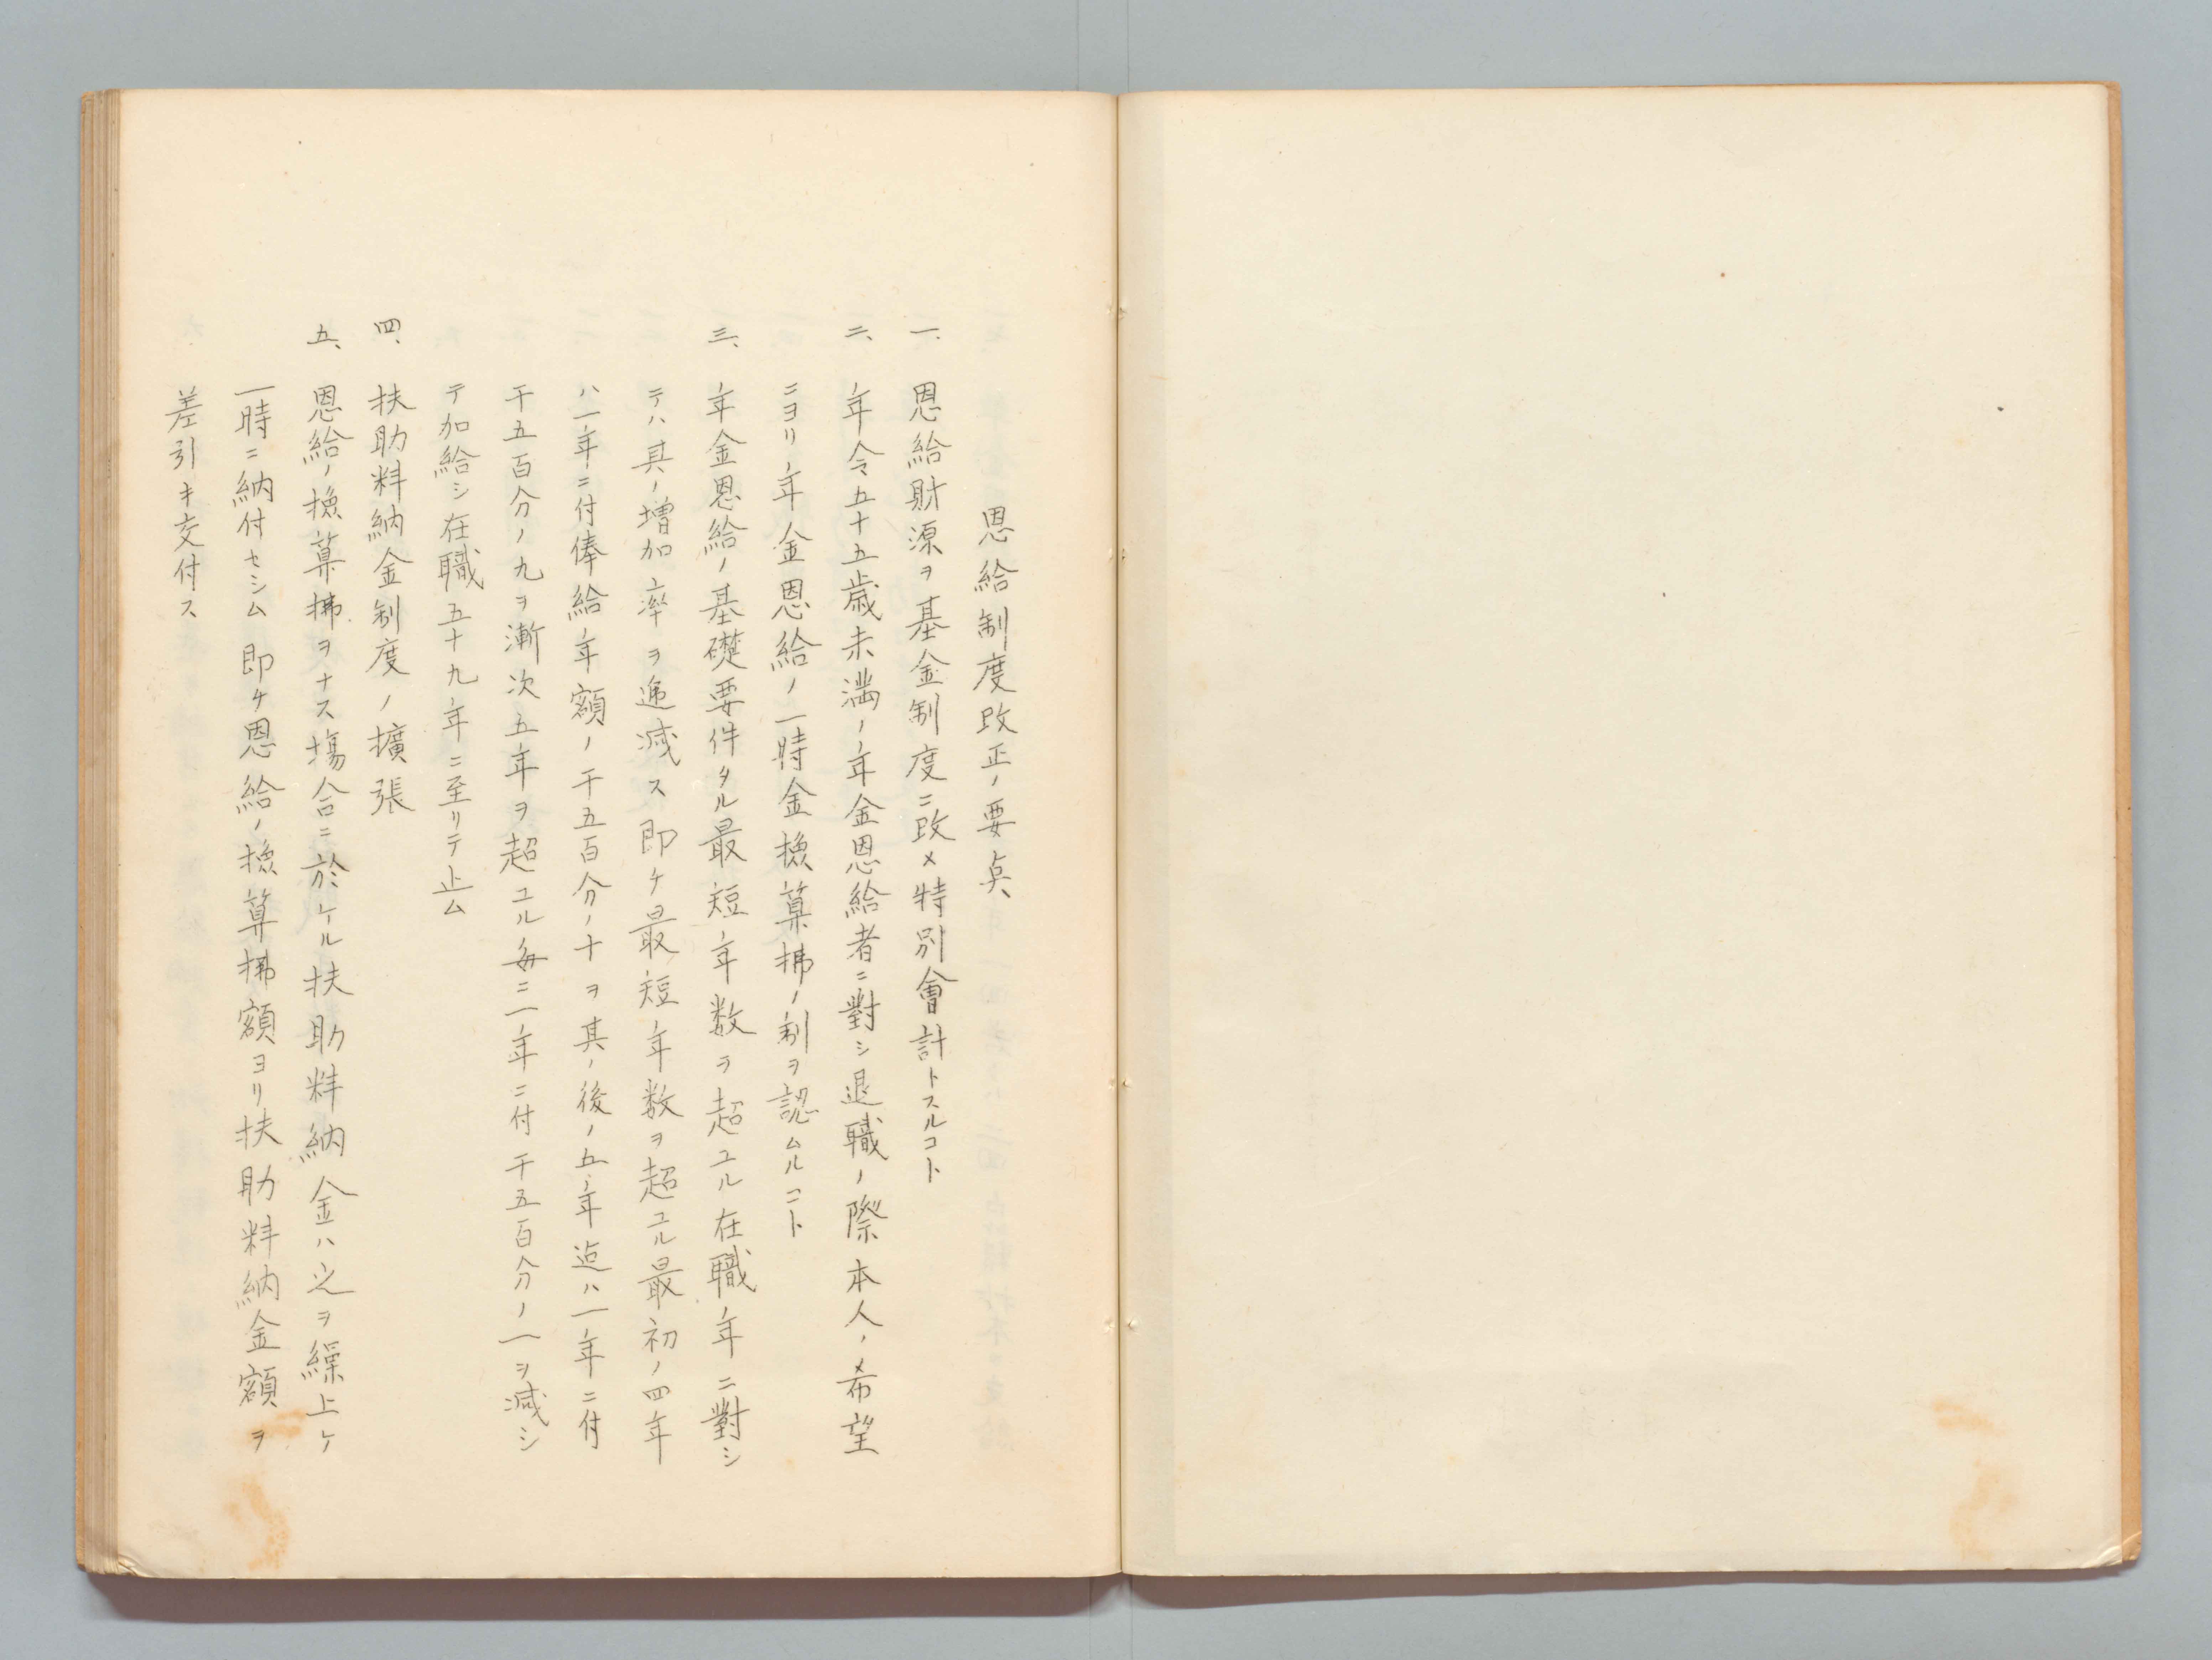 恩給制度改正ノ要点
一、恩給財源ヲ基金制度ニ改メ特別會計トスルコト
二、年令五十五歳未満ノ年金恩給者ニ對シ退職ノ際本人ノ希望
ニヨリ年金恩給ノ一時金換算拂ノ制ヲ認ムルコト
三、年金恩給ノ基礎要件タル最短年数ヲ超ユル在職年ニ對シ
テハ其ノ増加率ヲ逓減ス即チ最短年数ヲ超ユル最初ノ四年
ハ一年ニ付俸給年額ノ千五百分ノ十ヲ其ノ後ノ五年迠ハ一年ニ付
千五百分ノ九ヲ漸次五年ヲ超ユル毎ニ一年ニ付千五百分ノ一ヲ減シ
テ加給シ在職五十九年ニ至リテ止ム
四、扶助料納金制度ノ擴張
五、恩給ノ換算拂ヲナス塲合ニ於ケル扶助料納金ハ之ヲ繰上ケ
一時ニ納付セシム即チ恩給ノ換算拂額ヨリ扶助料納金額ヲ
差引キ交付ス